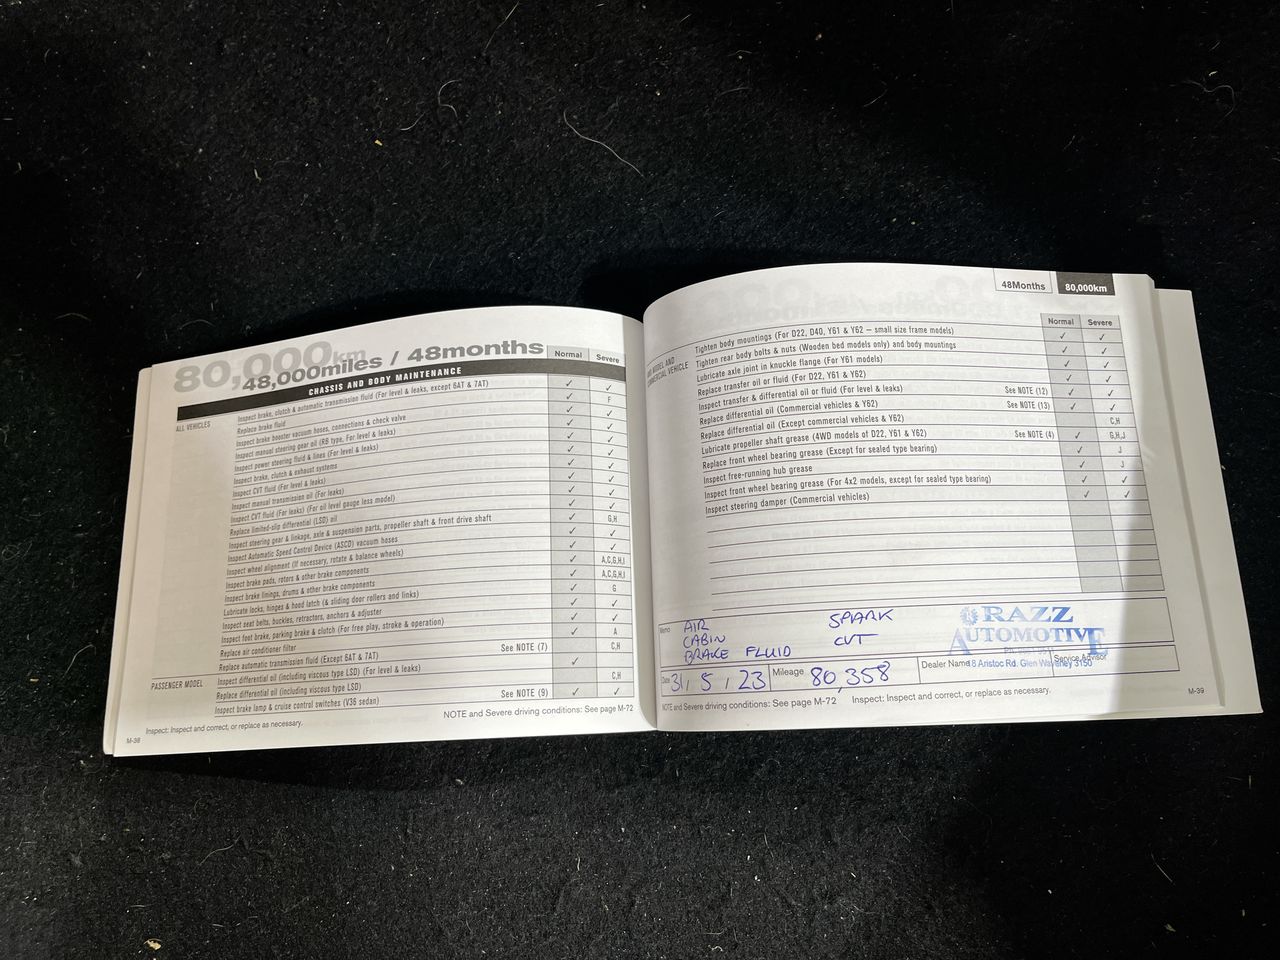 80,000km
48,000miles / 48months
Normal Severe
CHASSIS AND BODY MAINTENANCE
ALL VEHICLES
Inspect brake, clutch & automatic transmission fluid (For level & leaks, except 6AT & 7AT) ✓ ✓
Replace brake fluid ✓ F
Inspect brake booster vacuum hoses, connections & check valve ✓ ✓
Inspect manual steering gear oil (RB type, For level & leaks) ✓ ✓
Inspect power steering fluid & lines (For level & leaks) ✓ ✓
Inspect brake, clutch & exhaust systems ✓ ✓
Inspect CVT fluid (For level & leaks) ✓ ✓
Inspect manual transmission oil (For leaks) ✓ ✓
Inspect CVT fluid (For leaks) (For oil level gauge less model) ✓ ✓
Replace limited-slip differential (LSD) oil ✓ G,H
Inspect steering gear & linkage, axle & suspension parts, propeller shaft & front drive shaft ✓ ✓
Inspect Automatic Speed Control Device (ASCD) vacuum hoses ✓ ✓
Inspect wheel alignment (If necessary, rotate & balance wheels) ✓ A,C,G,H,I
Inspect brake pads, rotors & other brake components ✓ A,C,G,H,I
Inspect brake linings, drums & other brake components ✓ G
Lubricate locks, hinges & hood latch (& sliding door rollers and links) ✓ ✓
Inspect seat belts, buckles, retractors, anchors & adjuster ✓ ✓
Inspect foot brake, parking brake & clutch (For free play, stroke & operation) ✓ A
Replace air conditioner filter
Replace automatic transmission fluid (Except 6AT & 7AT) See NOTE (7) C,H
PASSENGER MODEL
Inspect differential oil (including viscous type LSD) (For level & leaks) ✓
Replace differential oil (including viscous type LSD) C,H
Inspect brake lamp & cruise control switches (V36 sedan) See NOTE (9) ✓ ✓
Inspect: Inspect and correct, or replace as necessary.
NOTE and Severe driving conditions: See page M-72
M-38
48Months 80,000km
Normal Severe
COMMERCIAL VEHICLE
Tighten body mountings (For D22, D40, Y61 & Y62 – small size frame models) ✓ ✓
Tighten rear body bolts & nuts (Wooden bed models only) and body mountings ✓ ✓
Lubricate axle joint in knuckle flange (For Y61 models) ✓ ✓
Replace transfer oil or fluid (For D22, Y61 & Y62) ✓ ✓
Inspect transfer & differential oil or fluid (For level & leaks) See NOTE (12) ✓ ✓
Replace differential oil (Commercial vehicles & Y62) See NOTE (13) ✓ ✓
Replace differential oil (Except commercial vehicles & Y62) C,H
Lubricate propeller shaft grease (4WD models of D22, Y61 & Y62) See NOTE (4) ✓ G,H,J
Replace front wheel bearing grease (Except for sealed type bearing) ✓ J
Inspect free-running hub grease ✓ J
Inspect front wheel bearing grease (For 4x2 models, except for sealed type bearing) ✓ ✓
Inspect steering damper (Commercial vehicles) ✓ ✓
Memo AIR SPARK
CABIN CVT
BRAKE FLUID
RAZZ
AUTOMOTIVE
8 Aristoc Rd. Glen Waverley 3150
Date 31/5/23 Mileage 80,358 Dealer Name Service Advisor
NOTE and Severe driving conditions: See page M-72 Inspect: Inspect and correct, or replace as necessary.
M-39